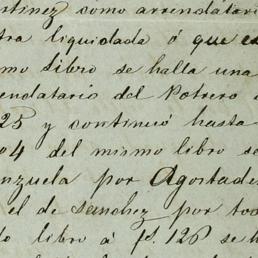 rtinez como arrendatari
tra liquidada ó que es
smo Libro se halla una
endatario del Potrero
25 y continuó hasta
04 del mismo libro se
nzuela por Agostade
el de Sanchez por tod
do libro á fs. 126 se h